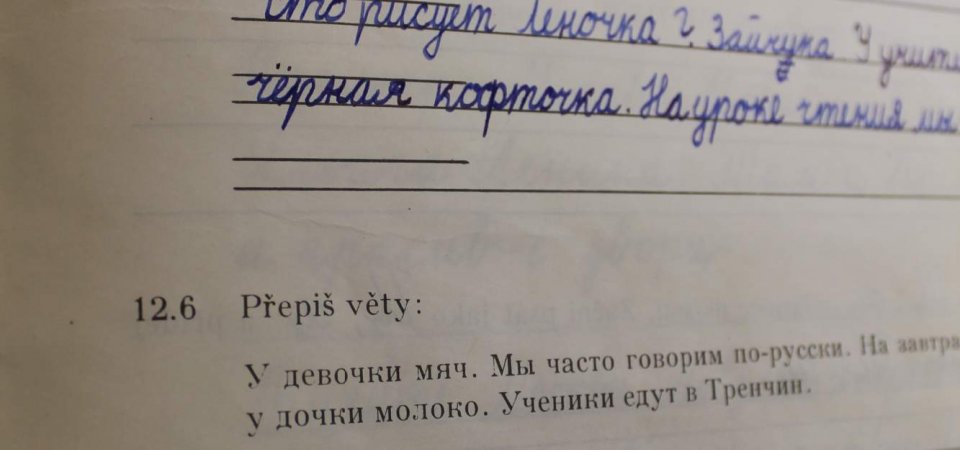 Что рисует Леночка? Зайчика. У учите
чёрная кофточка. На уроке чтения мы
12.6 Přepiš věty:
У девочки мяч. Мы часто говорим по-русски. На завтра
у дочки молоко. Ученики едут в Тренчин.